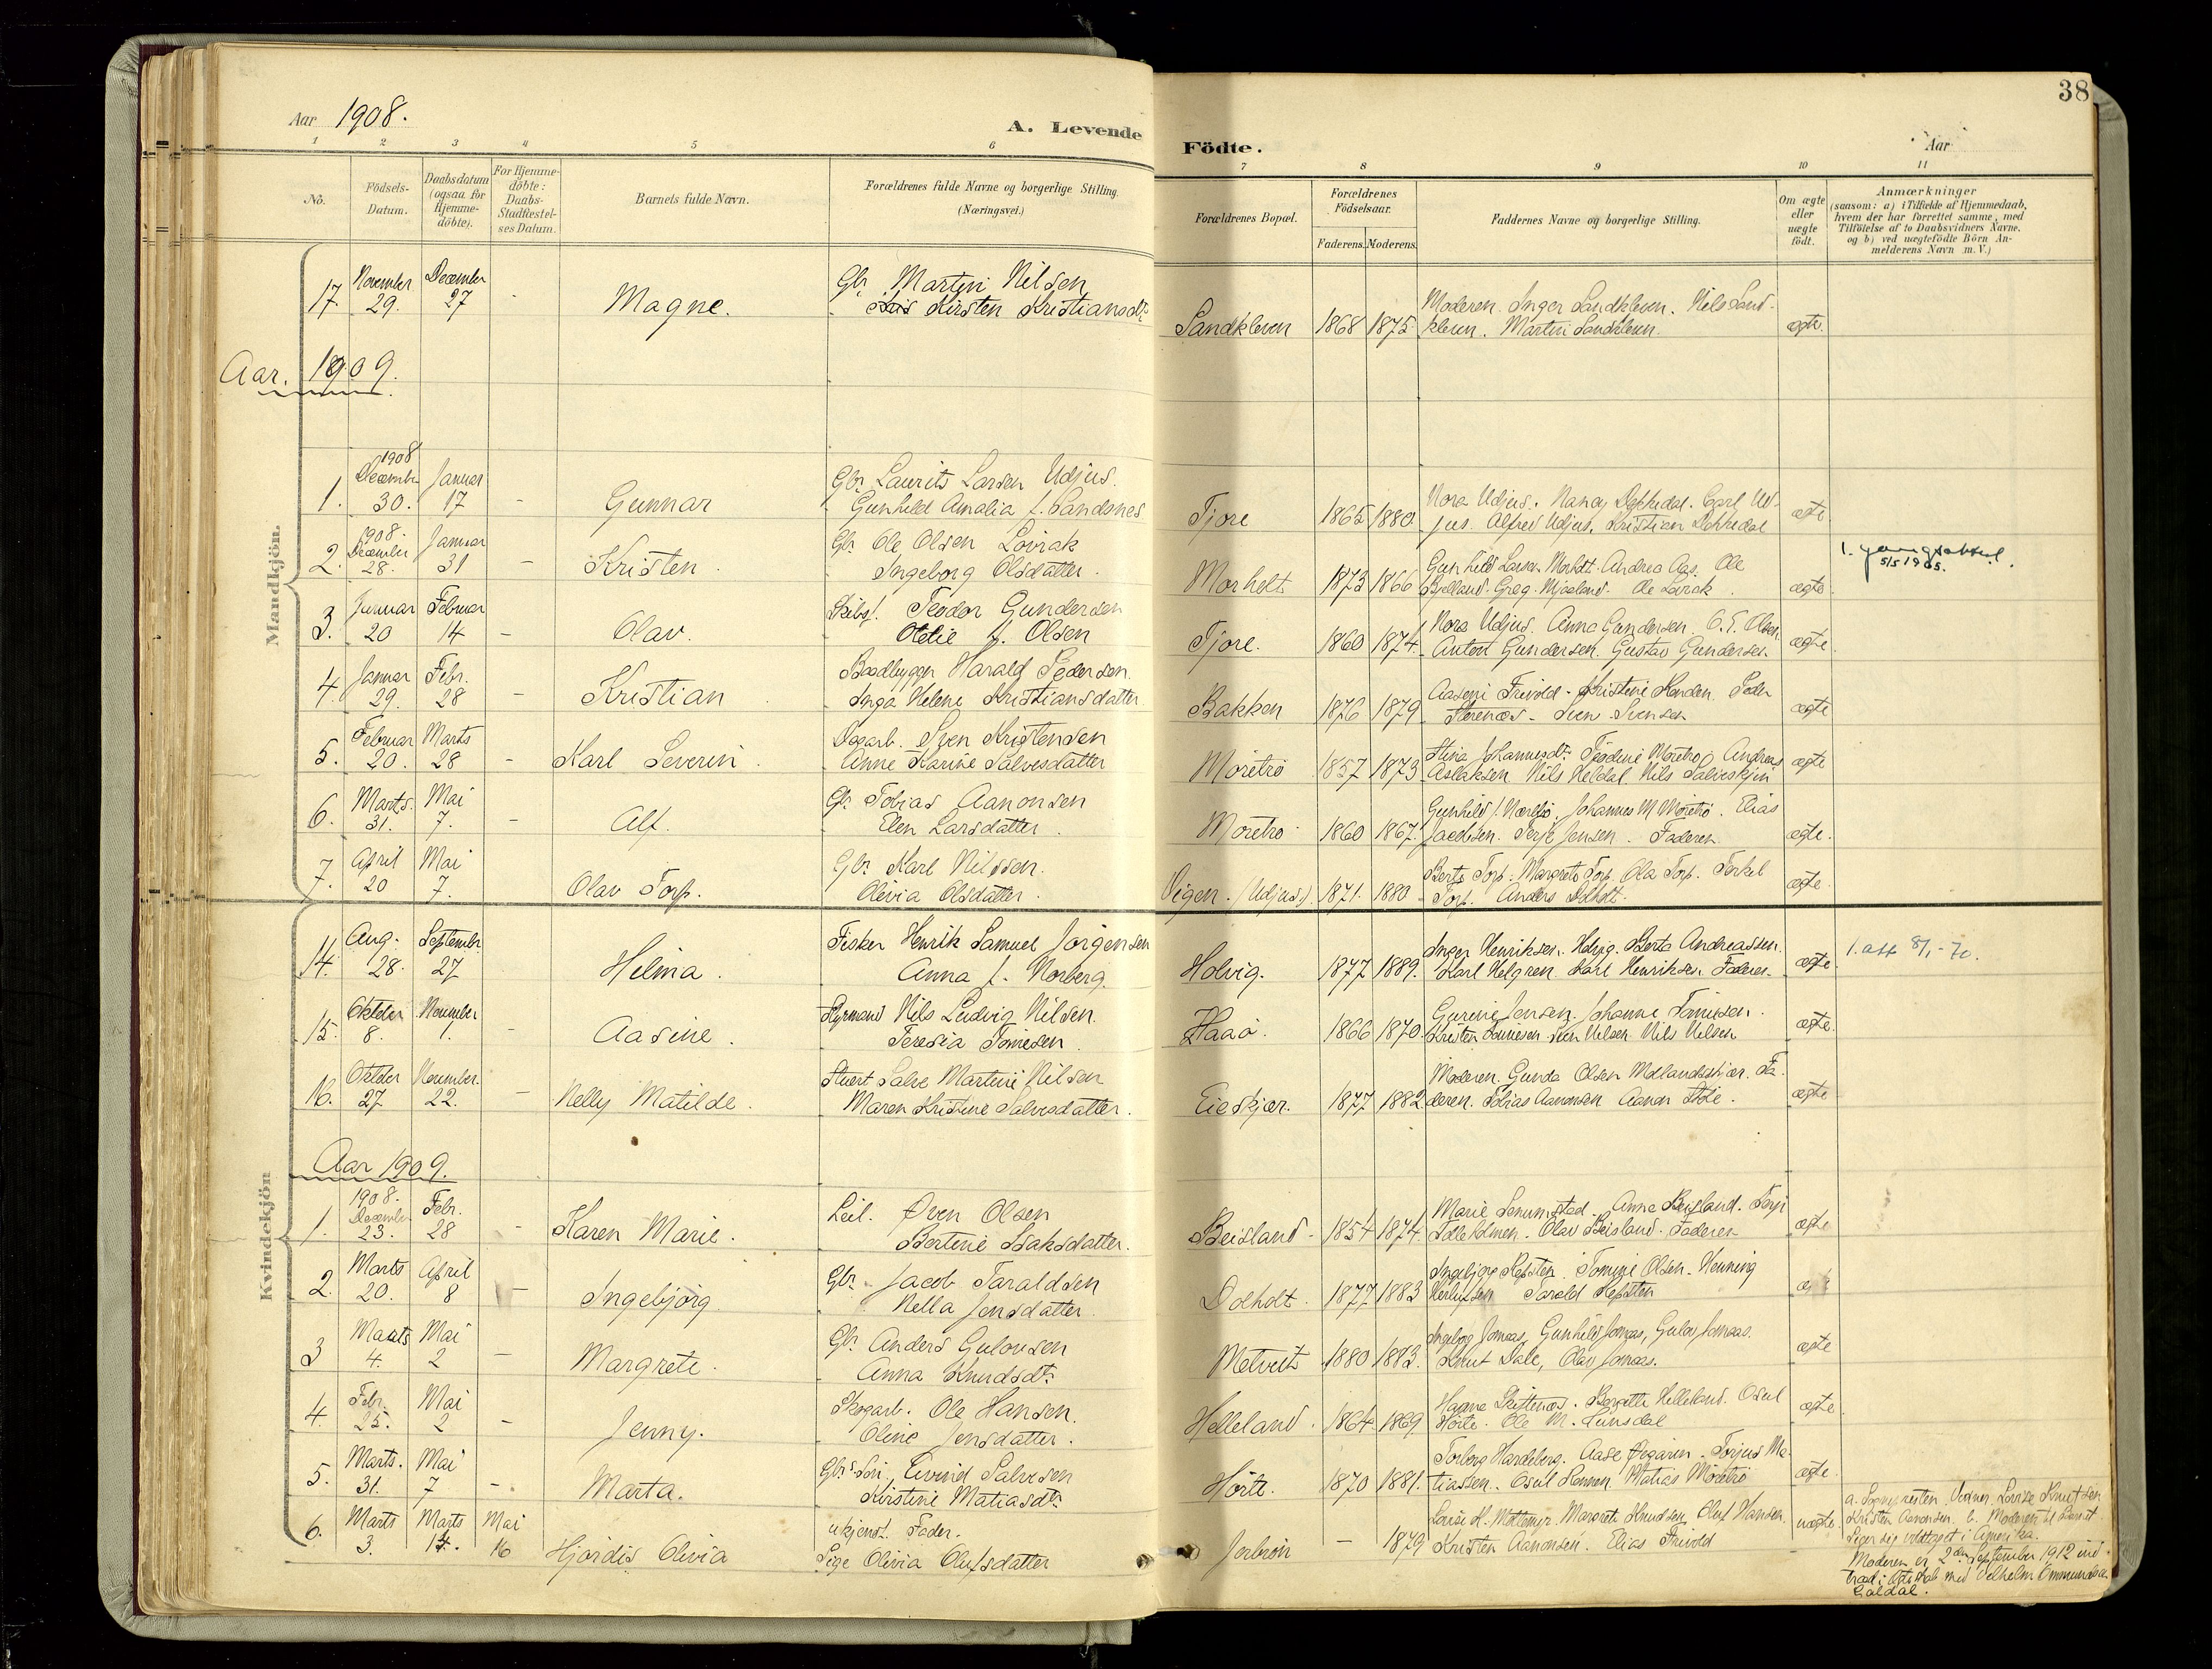 38
Aar 1908.
A. Levende
Födte.
Aar
1 2 3 4 5 6 7 8 9 10 11
No.
Födsels-
Datum.
Daabsdatum
(ogsaa for
Hjemme-
döbte).
For Hjemme-
döbte:
Daabs-
Stadfæstel-
ses Datum.
Barnets fulde Navn.
Forældrenes fulde Navne og borgerlige Stilling.
(Næringsvei.)
Forældrenes Bopæl.
Forældrenes
Födselsaar.
Faderens. Moderens.
Faddernes Navne og borgerlige Stilling.
Om ægte
eller
uægte
født.
Anmærkninger
(saasom: a) i Tilfælde af Hjemmedaab,
hvem der har forrettet samme, med
Tilföielse af to Daabsvidners Navne.
og b) ved uægtefödte Börn An-
melderens Navn m.V.)
Mandkjön.
November December Gbr. Martin Nilsen Moderen. Inger Sandkleven. Nils Sand-
17. 29. 27 - Magne. Kirsten Kristiansdtr Sandkleven 1868 1875 kleven. Martin Sandkleven. ægte.
Aar. 1909.
1908
December Januar Gbr. Laurits Larsen Udjus. Nora Udjus. Nancy Dekkedal. Carl Ud-
1. 30. 17 - Gunnar Gunhild Amalia f. Sandsnes Tjore 1865 1880 jus. Alfred Udjus. Kristian Dekkedal ægte
1908.
December Januar Gbr. Ole Olsen Lovrak Gunhild Larsen Morholt. Andrea Aas. Ole 1. gangsattest.
2. 28. 31 - Kristen. Ingeborg Olsdatter. Morholt 1873 1866 Bjelland. Greg. Mjaaland. Ole Lovrak. ægte 5/5 1965.
Januar Februar Skibsf. Teodor Gundersen Nora Udjus. Anna Gundersen. O.T. Olsen.
3. 20 14 - Olav. Otelie f. Olsen Tjore. 1860 1874 Anton Gundersen. Gustav Gundersen ægte.
Januar Febr. Baadbygger Harald Pedersen. Aaseni Frivold. Kristine Handen. Peder
4. 29. 28 - Kristian Inga Helene Kristiansdatter Bakken 1876 1879 Sven Svensen ægte
Februar Marts Dagarb. Sven Kristensen Stina Johannesdtr. Teodine Moretrø, Andreas
5. 20. 28 - Karl Severin. Anne Karine Salvesdatter Moretrø 1857 1873 Aslaksen Nils Heldal. Nils ægte
Marts. Mai Gbr. Tobias Aanonsen Gunhild Johannes M Moretrø. Elias
6. 31. 7. - Alf. Elen Larsdatter. Moretrø 1860 1867. Jacobsen. Terje Jensen. Faderen ægte.
April Mai Gbr. Karl Nilssen. Berte Torp. Margrete Torp. Ola Torp. Terkel
7. 20 7. Olav Torp. Olivia Olsdatter. Vigen. (Udjus). 1871. 1880 Torp. Anders Dolholt. ægte.
Kvindekjön
Aug. Septembr. Fisker Henrik Samuel Jörgensen Inger Henriksen. Holvig. Berta Andreassen.
14. 28. 27 Helma. Anna f. Norberg. Holvig. 1877 1889. Karl Helgren. Karl Henriksen. Faderen ægte 1. att 8/1-70.
Oktober November Styrmand Nils Ludvig Nilsen. Gurine Jensen. Johanne Tomesen.
15. 8. 1. - Aasine. Teresia Tomesen Haaö. 1866 1870 Kristen Tomesen. Sven Nilsen. Nils Nilsen ægte.
Oktober November. Stuert Salve Martin Nilsen Moderen. Gunda Olsen Fa-
16. 27 22. - Nelly Matilde. Maren Kristine Salvesdatter. Eieskjær. 1877 1882 deren. Tobias Aanonsen Aanon ægte
Aar 1909.
1908.
December Febr. Leil. Even Olsen Marie Anna Beisland. Terje
1. 23. 28 - Karen Marie. Bertine Isaksdatter. Beisland 1854 1874 Olav Beisland. Faderen ægte
Marts April Gbr. Jacob Taraldsen Ingebjørg Hesten. Tomine Olsen. Henning
2. 20. 8 - Ingebjörg. Nella Jensdatter. Dolholt. 1877 1883 Herlufsen Tarald Hesten
Marts Mai Gbr. Anders Gulovsen Ingeborg Jomaas, Gunhild Jomaas, Gulov Jomaas.
3 4. 2 - Margrete. Anna Knudsdtr. Metveit 1880 1883. Knut Dale, Olav Jomaas. ægte
Febr. Mai Skogarb. Ole Hansen. Hanna Bergitte Helleland. Osul
4. 25. 2 - Jenny. Oline Jensdatter. Helleland. 1864 1869 Hörte. Ole M. ægte.
Marts. Mai Gbrs. Sön. Eivind Salvesen Torborg Hardeberg. Aase Torjus Ma-
5. 31. 7 - Marta. Kirstine Matiasdtr. Hörte. 1870 1881. tiassen. Osul Matias Moretrø ægte.
Marts Marts Mai ukjendt Fader. Louise H. Margrete Knudsen. Oluf Hansen. uægte
6. 3. 14. 16 Hjördis Olivia Pige Olivia Olufsdatter - 1879 Kristen Aanonsen. Elias Frivold
a. Sognepresten. Vidner Lovise Knutsen
Kristen Aanonsen. b. Moderen
i Amerika.
Moderen er 2den September 1912 ind-
traadt i Ægteskab med Vilhelm Ommundsen
Galdal.